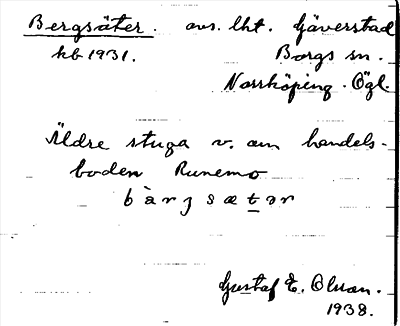 Bergsäter. avs. lht. Gäverstad
kb 1931. Borgs sn.
Norrköping. Ögl.
Äldre stuga v. om handels-
boden Runemo
bàrjsætər
Gustaf E. Olsson.
1938.